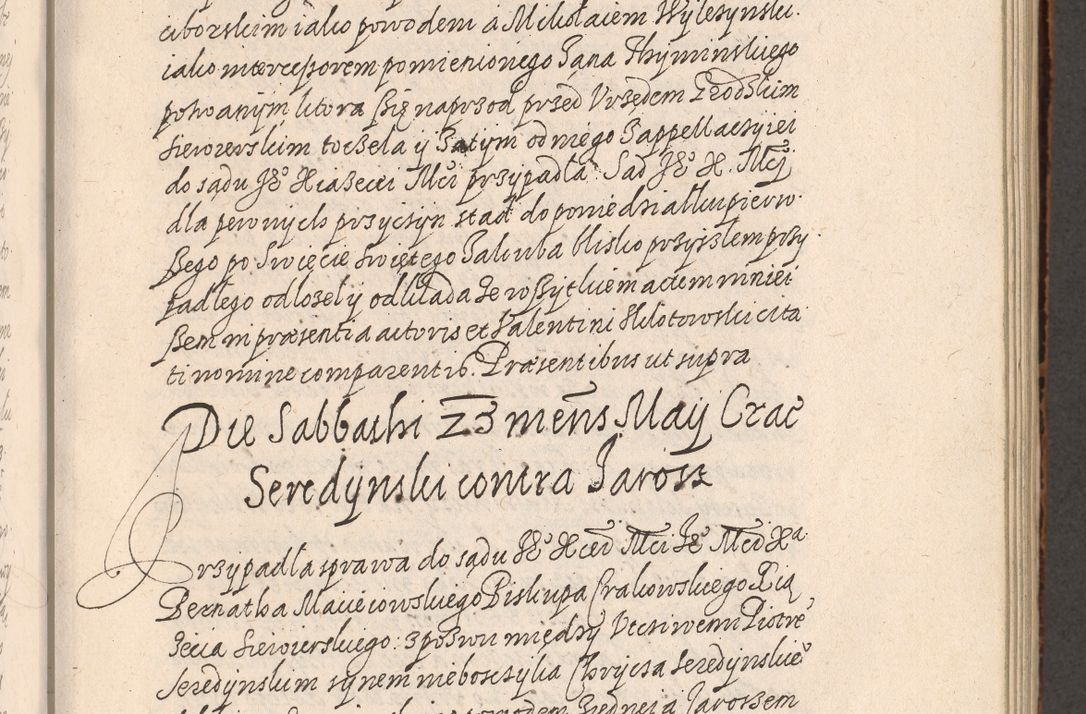 ciborskim iako powodem a Mikołaiem Wylezynski
iako intercessorem pomienionego Jana Thyminskiego
pozwanym ktora ssię naprzod przed Vrzędem Grodskim
Siewierskim toczeła y Zatym od niego Zappellacyiei
do sądu Je° Xiazeci Mci przypadła. Sąd Je° X. Mci
dla pewnych przyczyn stąd do poniedziałku pierw
szego po Swięcie swiętego Jakuba blisko przyszłem przy
padłego odłozeł y odkłada ze wssytkiem actem mniei
szem in præsentia actoris et Valentini Kłotowski cita
ti nomine comparentis. Præsentibus ut supra
Die Sabbathi 23 mens Maij Crac
Seredynski contra Jaross
Przypadła sprawa do sądu Je° Xced Mci Je° Mci Xa
Bernatha Macieiowskiego Biskupa Crakowskiego Xią
zecia Siewierskiego z pozwu między Vczciwemi Piotre
Seredynskim synem nieboszczyka Chrycza Seredynskie°
powodem z iednei a Jarossem